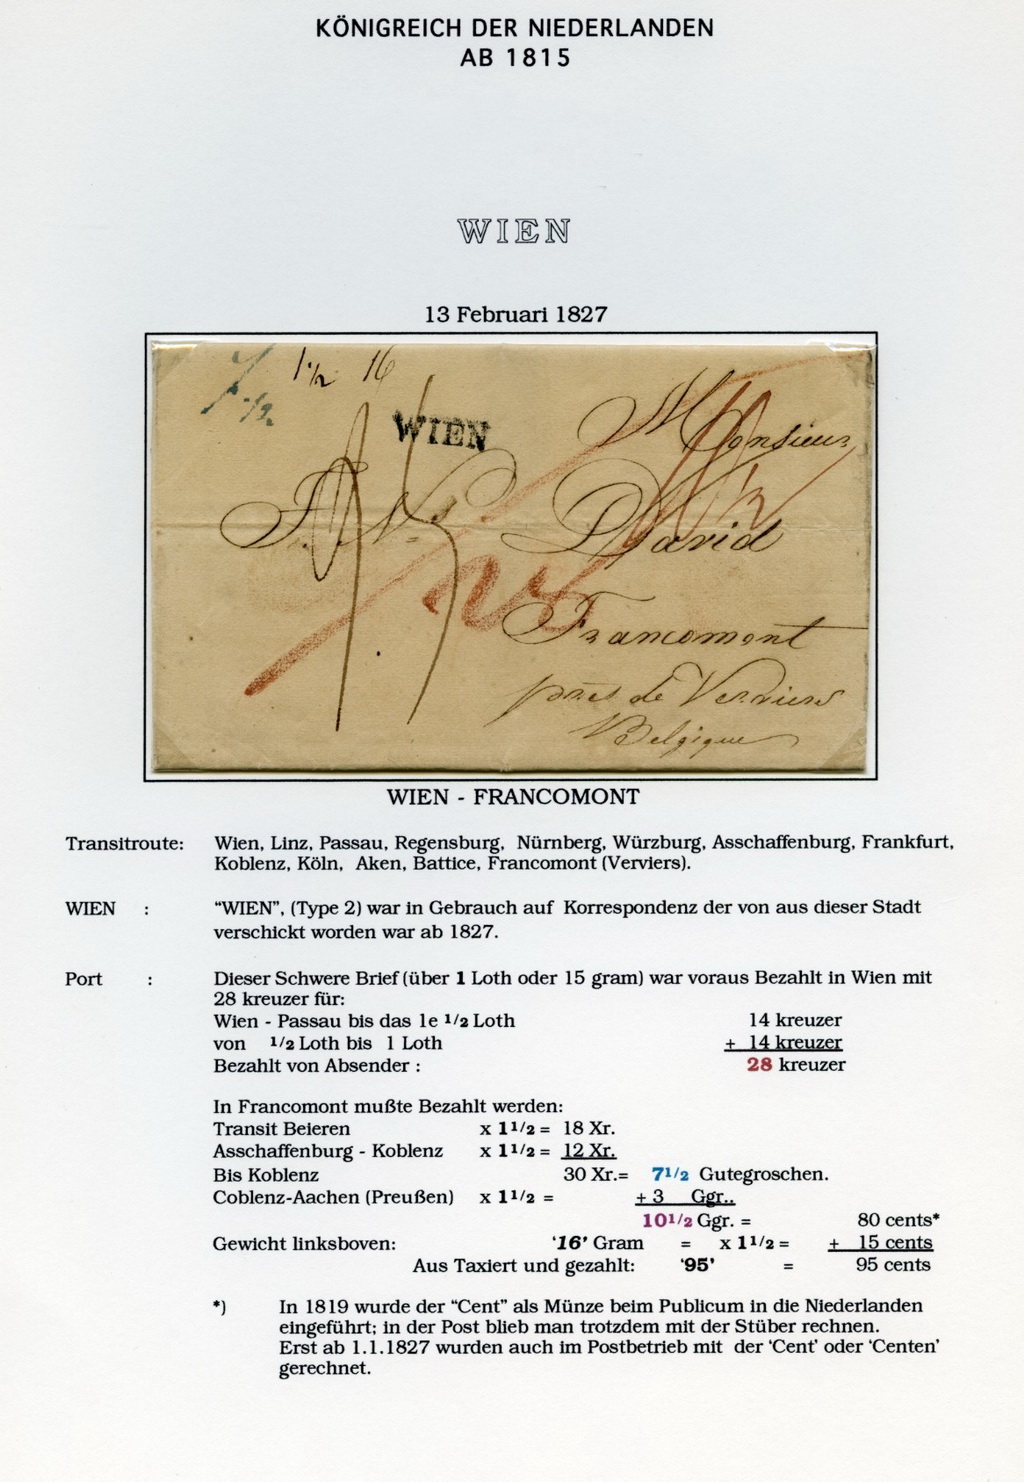 KÖNIGREICH DER NIEDERLANDEN
AB 1815
WIEN
13 Februari 1827
1·1/2 16
7·1/2
WIEN
Monsieur
10 1/2
F. N. David
28
Francomont
près de Verviers
Belgique
WIEN - FRANCOMONT
Transitroute: Wien, Linz, Passau, Regensburg, Nürnberg, Würzburg, Asschaffenburg, Frankfurt,
Koblenz, Köln, Aken, Battice, Francomont (Verviers).
WIEN : “WIEN”, (Type 2) war in Gebrauch auf Korrespondenz der von aus dieser Stadt
verschickt worden war ab 1827.
Port : Dieser Schwere Brief (über 1 Loth oder 15 gram) war voraus Bezahlt in Wien mit
28 kreuzer für:
Wien - Passau bis das 1e 1/2 Loth 14 kreuzer
von 1/2 Loth bis 1 Loth + 14 kreuzer
Bezahlt von Absender : 28 kreuzer
In Francomont mußte Bezahlt werden:
Transit Beieren x 1 1/2 = 18 Xr.
Asschaffenburg - Koblenz x 1 1/2 = 12 Xr.
Bis Koblenz 30 Xr.= 7 1/2 Gutegroschen.
Coblenz-Aachen (Preußen) x 1 1/2 = + 3 Ggr..
10 1/2 Ggr. = 80 cents*
Gewicht linksboven: ‘16’ Gram = x 1 1/2 = + 15 cents
Aus Taxiert und gezahlt: ‘95’ = 95 cents
*) In 1819 wurde der “Cent” als Münze beim Publicum in die Niederlanden
eingeführt; in der Post blieb man trotzdem mit der Stüber rechnen.
Erst ab 1.1.1827 wurden auch im Postbetrieb mit der ‘Cent’ oder ‘Centen’
gerechnet.